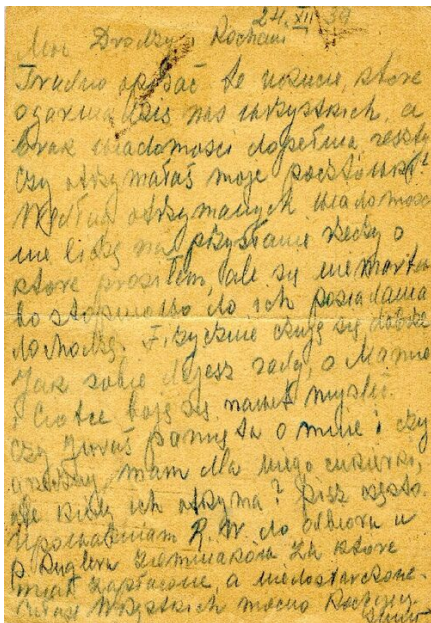 24.XII 39
Moi Drodzy i Kochani
Trudno opisać te uczucia, które
ogarnia dziś nas wszystkich, a
brak wiadomości dopełnia reszty
Czy otrzymałaś moje pocztówki?
Według otrzymanych wiadomości
nie liczę na przysłanie rzeczy o
które prosiłem, ale się nie martw
bo stopniowo do ich posiadania
dochodzę. Fizycznie czuję się dobrze
Jak sobie dajesz radę, o Mamie
i Ciotce boję się nawet myśleć.
Czy Juruś pamięta o mnie i czy
grzeczny, mam dla niego cukierki,
ale kiedy ich otrzyma? Pisz często.
Upoważniam R. W. do odbioru u
p. Kuglera ziemniaków za które
miał zapłacone, a niedostarczone.
wszystkich mocno Kochający